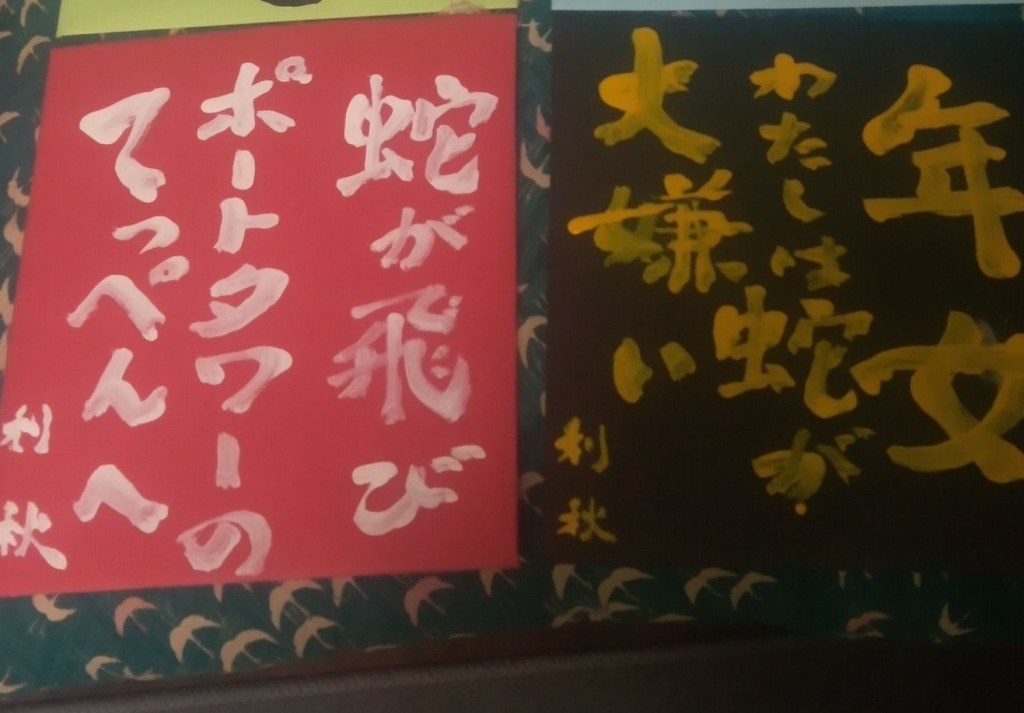 年女
わたしは蛇が
大嫌い
利秋
蛇が飛び
ポートタワーの
てっぺんへ
利秋